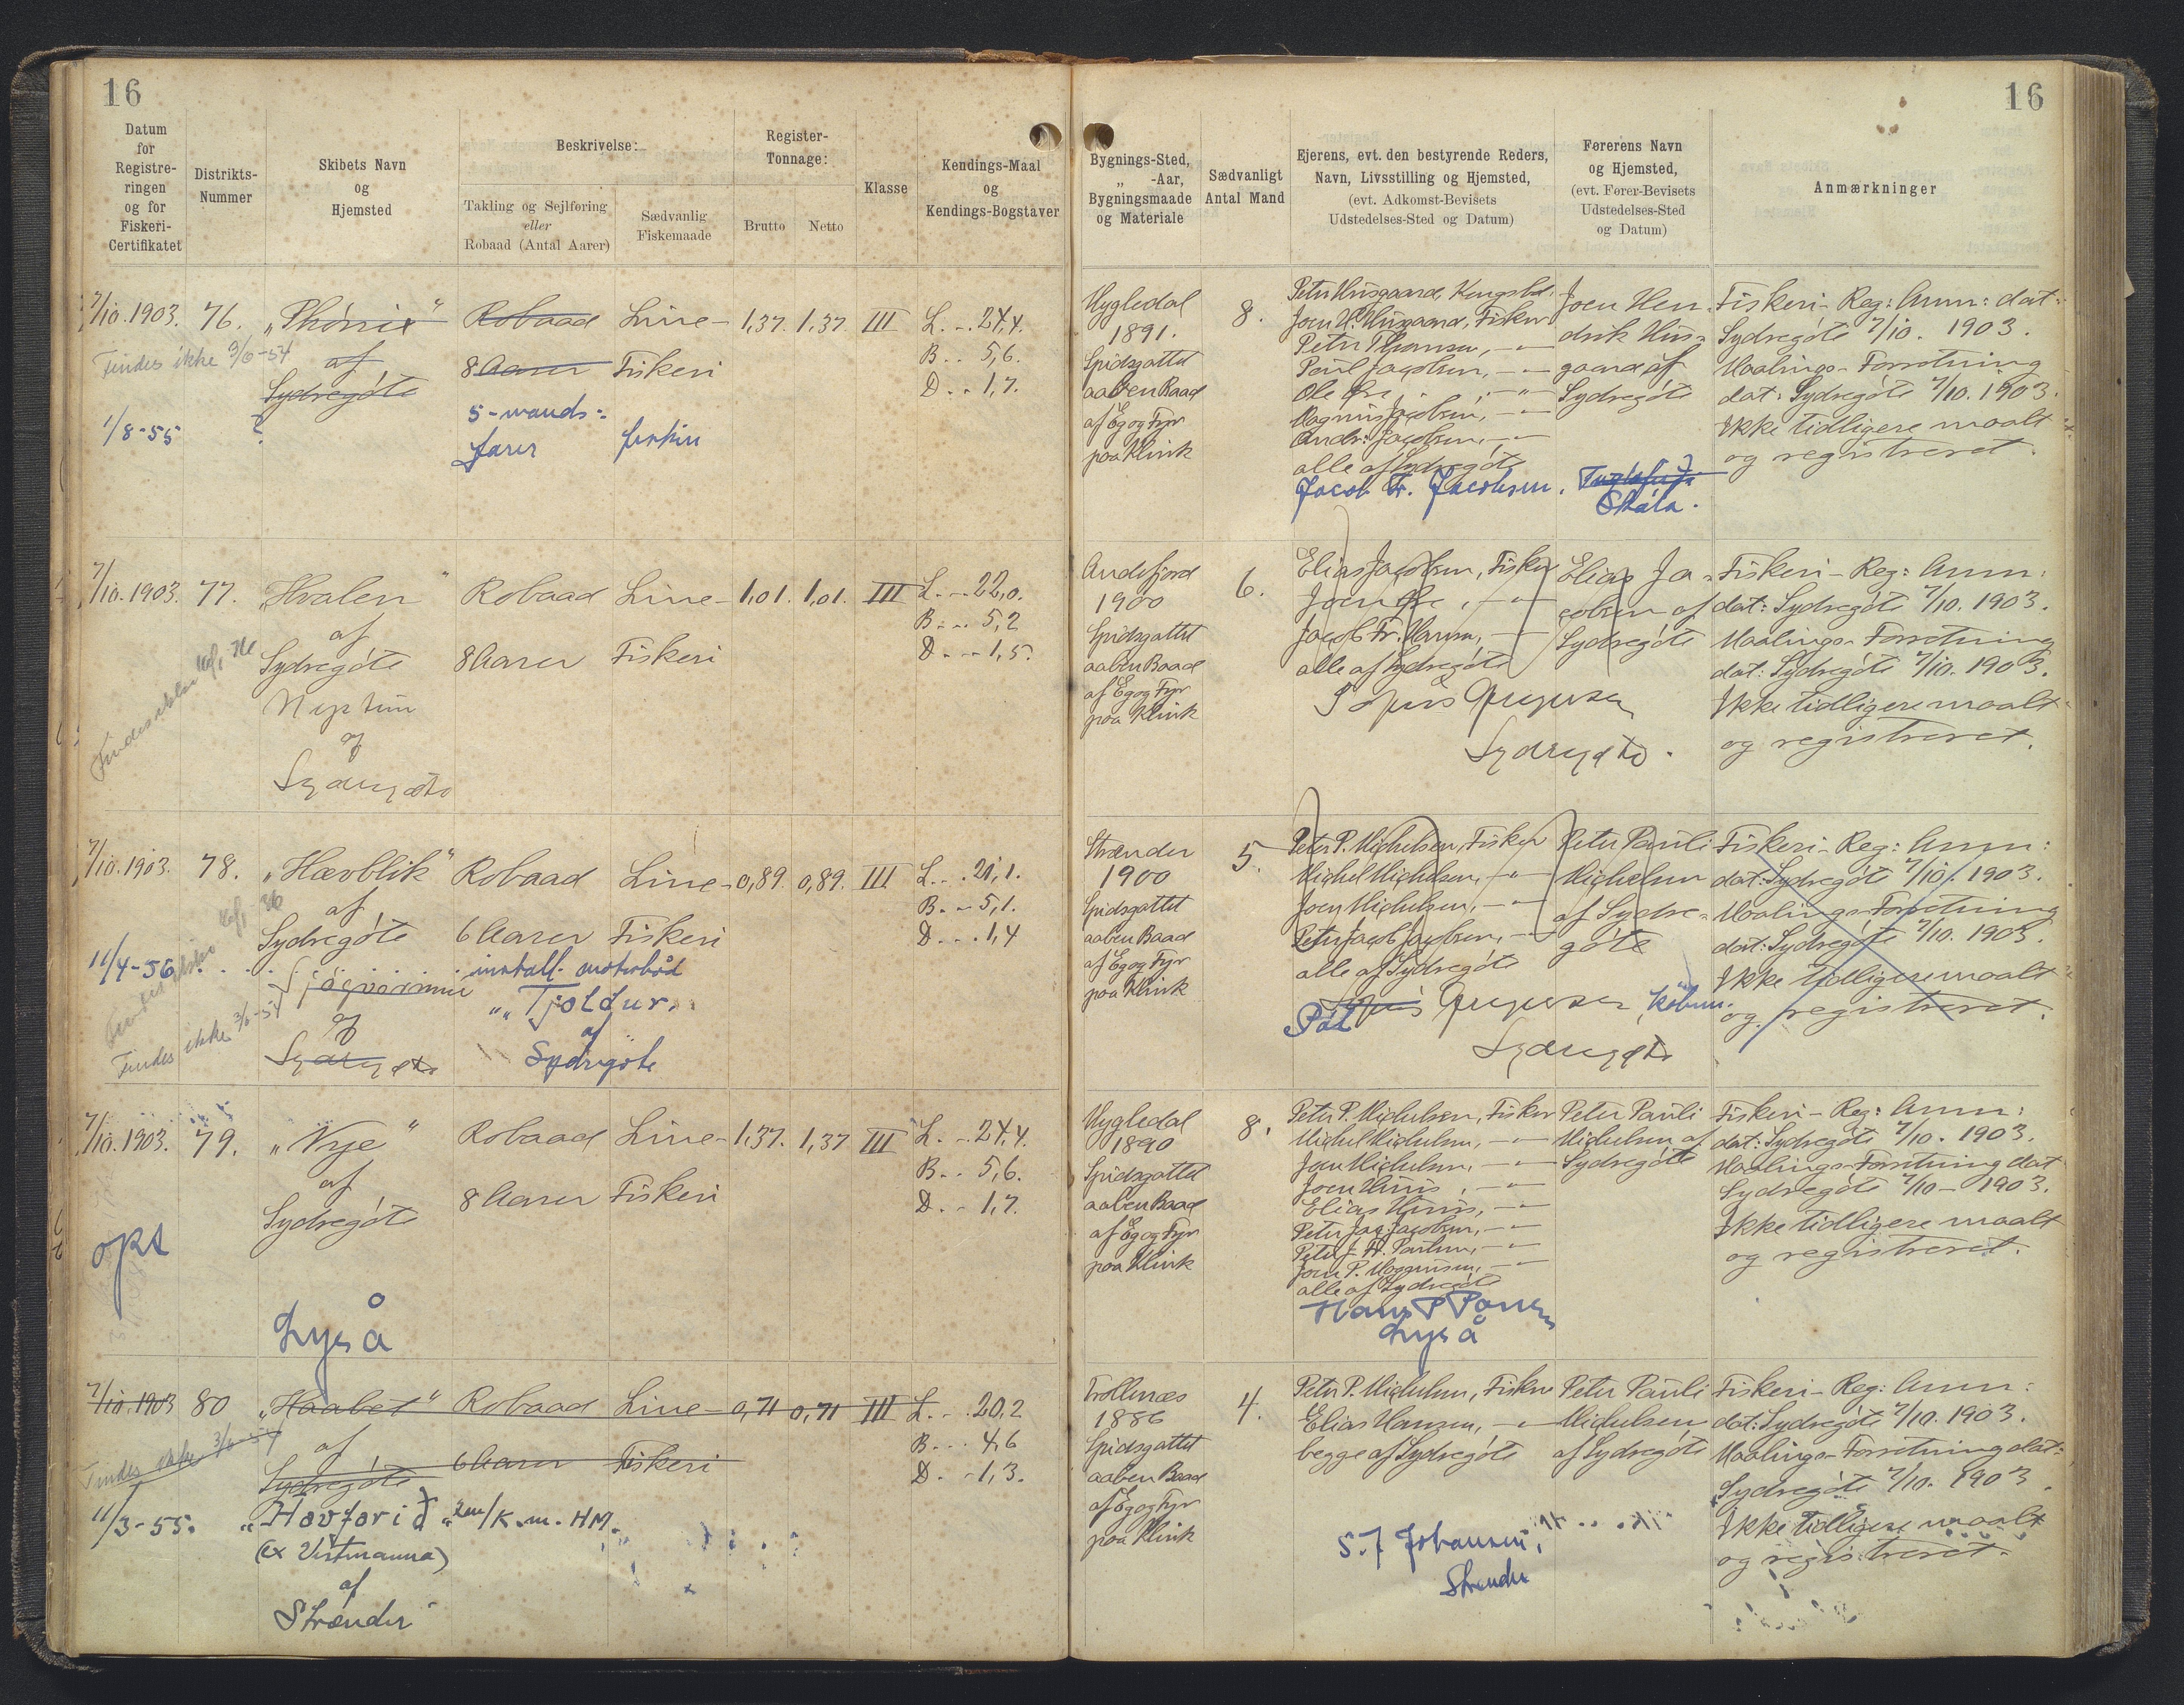 16
16
Datum
for
Registre-
ringen
og for
Fiskeri-
Certifikatet
Distrikts-
Nummer
Skibets Navn
og
Hjemsted
Beskrivelse:
Takling og Sejlføring
eller
Robaad (Antal Aarer)
Sædvanlig
Fiskemaade
Register-
Tonnage:
Brutto
Netto
Klasse
Kendings-Maal
og
Kendings-Bogstaver
Bygnings-Sted,
„ -Aar,
Bygningsmaade
og Materiale
Sædvanligt
Antal Mand
Ejerens, evt. den bestyrende Reders,
Navn, Livsstilling og Hjemsted,
(evt. Adkomst-Bevisets
Udstedelses-Sted og Datum)
Førerens Navn
og Hjemsted,
(evt. Fører-Bevisets
Udstedelses-Sted
og Datum)
Anmærkninger
7/10. 1903.
Findes ikke 3/6-54
1/8-55
76.
„Phönix“
af
Sydregöte
?
Robaad
8 Aarer
5-mands-
farer
Line-
Fiskeri
1,37.
1,37.
III
L. - 24,4.
B. - 5,6.
D. - 1,7.
Hygledal
1891.
Spidsgattet
aaben Baad
af Eg og Fyr
paa Klink
8.
Joen H. Husgaard, Fisker
Petur Thomsen, - " -
Poul Jacobsen, - " -
Magnus Jacobsen, - " -
Andr: Jacobsen, - " -
alle af Sydregöte
Jacob Fr. Jacobsen.
Joen Hen-
drik Hus-
gaard af
Sydregöte
Skála.
Fiskeri- Reg: Anm: dat:
Sydregöte 7/10. 1903.
Maalings- Forretning
dat: Sydregöte 7/10. 1903.
Ikke tidligere maalt
og registreret.
7/10. 1903.
77.
„Hvalen“
af
Sydregöte
Neptun
af
Sydregøta
Robaad
8 Aarer
Line-
Fiskeri
1,01.
1,01.
III
L. - 22,0.
B. - 5,2
D. - 1,5.
Andefjord
1900
Spidsgattet
aaben Baad
af Eg og Fyr
paa Klink
6.
Elias Jacobsen, Fisker
Jacob Fr. Hansen, - " -
alle af Sydregöte
Sydregøta.
Elias Ja-
cobsen af
Sydregöte
Fiskeri- Reg: Anm:
dat: Sydregöte 7/10. 1903.
Maalings- Forretning
dat: Sydregöte 7/10. 1903.
Ikke tidligere maalt
og registreret.
7/10. 1903.
11/4-56
Findes ikke 3/6-54
78.
„Havblik“
af
Sydregöte
af
Sydregøta
Robaad
6 Aarer
install. motorbåd
„Tjoldur“
af
Sydrugöte
Line-
Fiskeri
0,89.
0,89.
III
L. - 21,1.
B. - 5,1.
D. - 1,4
Strænder
1900
Spidsgattet
aaben Baad
af Eg og Fyr
paa Klink
5.
Peter P. Michelsen, Fisker
Michel Michelsen, - " -
Joen Michelsen, - " -
Peter Jacob Jacobsen, - " -
alle af Sydregöte
Sydregøta
Peter Pauli
Michelsen
af Sydre-
göte
Fiskeri- Reg: Anm:
dat: Sydregöte 7/10. 1903.
Maalings- Forretning
dat: Sydregöte 7/10. 1903.
Ikke tidligere maalt
og registreret.
7/10. 1903.
79.
„Nye“
af
Sydregöte
Robaad
8 Aarer
Line-
Fiskeri
1,37.
1,37
III
L. - 24,4.
B. - 5,6.
D. - 1,7.
Hygledal
1890
Spidsgattet
aaben Baad
af Eg og Fyr
paa Klink
8.
Peter P. Michelsen, Fisker
Michel Michelsen, - " -
Joen Michelsen, - " -
Peter Jac: Jacobsen, - " -
alle af Sydregöte
Peter Pauli
Michelsen af
Sydregöte
Fiskeri- Reg: Anm:
dat: Sydregöte 7/10. 1903.
Maalings- Forretning dat
Sydregöte 7/10 - 1903.
Ikke tidligere maalt
og registreret.
7/10. 1903
Findes ikke 3/6-54
11/3-55.
80
„Haabet“
af
Sydregöte
„Havfarið“
(ex Vestmanna)
af
Strænder
Robaad
6 Aarer
Line-
Fiskeri
0,71
0,71
III
L. - 20,2
B. - 4,6
D. - 1,3.
Trollenæs
1886
Spidsgattet
aaben Baad
af Eg og Fyr
paa Klink
4.
Peter P. Michelsen, Fisker
Elias Hansen, - " -
begge af Sydregöte
S. J Johansen,
Strender
Peter Pauli
Michelsen
af Sydregöte
Fiskeri- Reg: Anm:
dat: Sydregöte 7/10. 1903.
Maalings- Forretning dat:
Sydregöte 7/10. 1903.
Ikke tidligere maalt
og registreret.